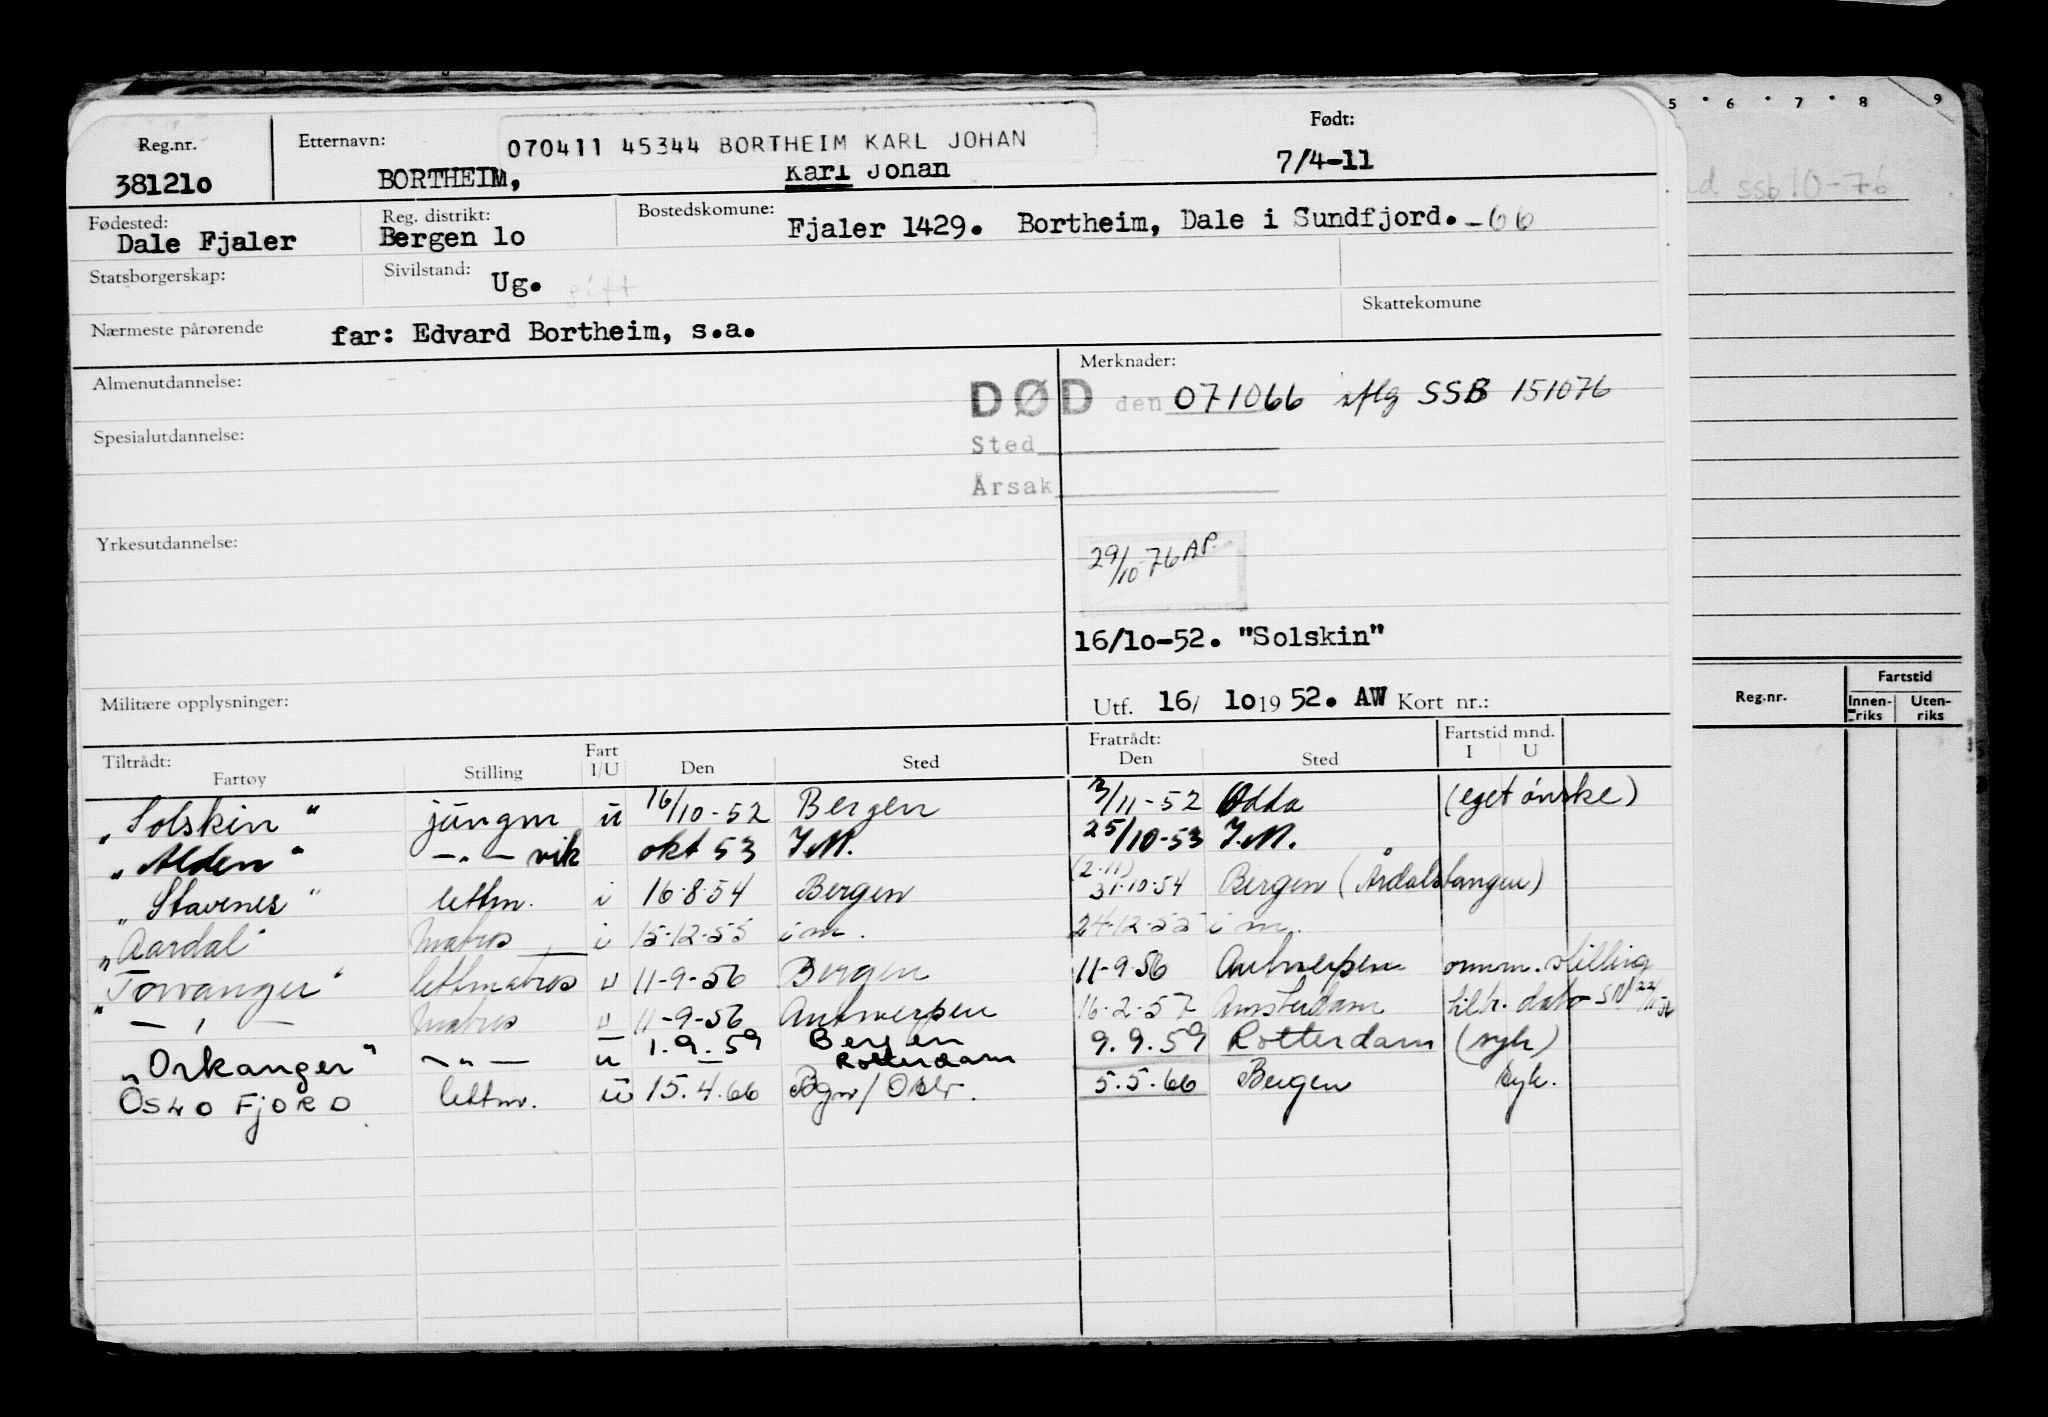 Reg.nr. Etternavn: 070411 45344 BORTHEIM KARL JOHAN Født:
381210 BORTHEIM, Karl Johan 7/4-11
Fødested: Reg. distrikt: Bostedskomune:
Dale Fjaler Bergen 10 Fjaler 1429. Bortheim, Dale i Sundfjord. -66
Statsborgerskap: Sivilstand: Ug. gift
Skattekomune
Nærmeste pårørende far: Edvard Bortheim, s.a.
Almenutdannelse: Merknader:
DØD den 071066 iflg SSB 151076
Spesialutdannelse: Sted
Årsak
Yrkesutdannelse: 29/10-76 AP.
16/10-52. "Solskin"
Militære opplysninger: Utf. 16/ 10 19 52. AW Kort nr.:
Tiltrådt: Fart Fratrådt: Fartstid mnd.
Fartøy Stilling I/U Den Sted Den Sted I U
"Solskin" jungm u 16/10-52 Bergen 3/11-52 Odda (eget ønske)
"Alden" — " — vik okt 53 I.M. 25/10-53 I.M.
(2.11)
"Stavenes" lettm. i 16.8.54 Bergen 31.10.54 Bergen (Årdalstangen)
"Aardal" Matros i 15-12-55 i m. 24-12-55 i m.
"Torvanger" lettmatros u 11-9-56 Bergen 11-9-56 Antwerpen omm. stilling
" — , — Matros u 11-9-56 Antwerpen 16-2-57 Amsterdam tiltr. dato
"Orkanger" — " — u 1.9.59 Bergen Rotterdam 9.9.59 Rotterdam (syk)
OSLO FJORD lettm. u 15.4.66 Bgn/Oslo. 5.5.66 Bergen syk.
5 6 7 8 9
ssb 10-76
Reg.nr. Fartstid
Innen-riks Uten-riks